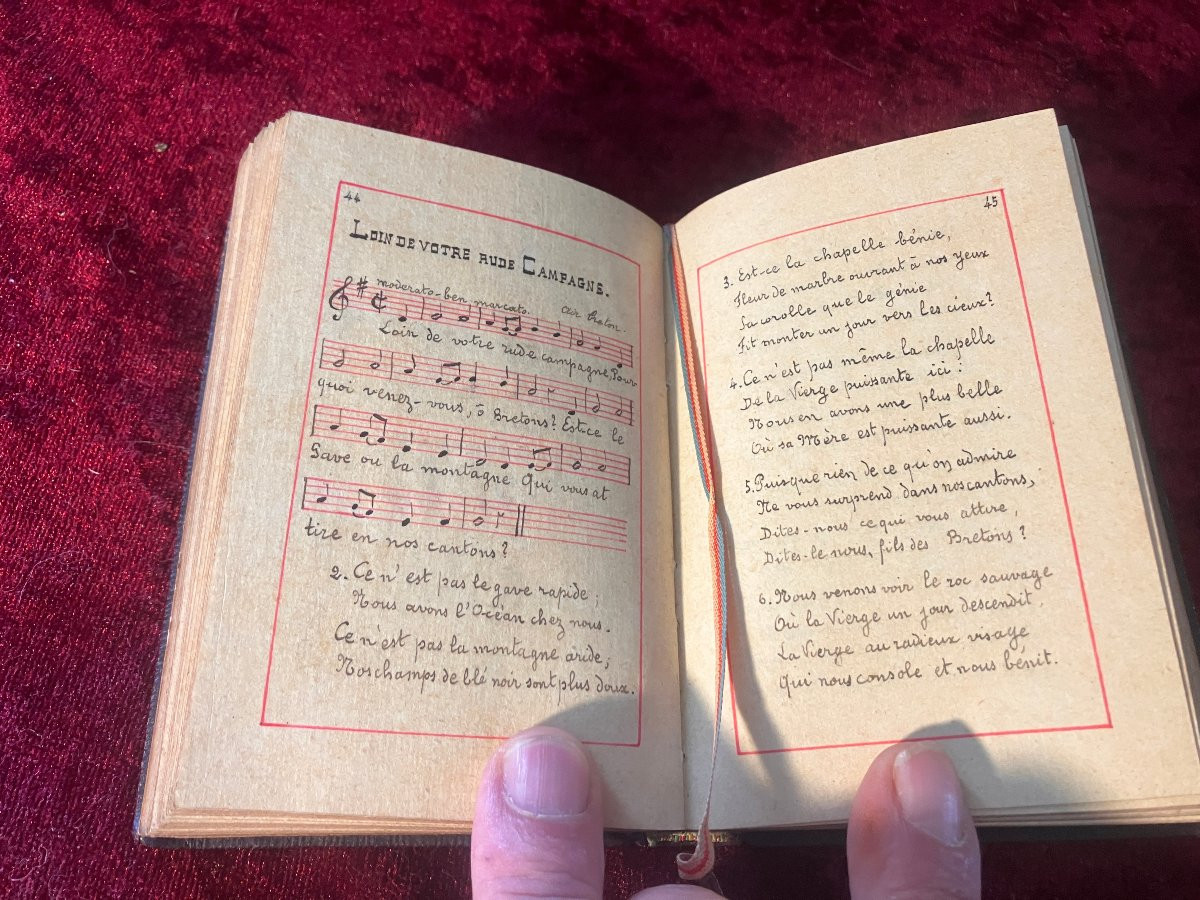 44
LOIN DE VOTRE RUDE CAMPAGNE.
moderato-ben marcato. air breton.
Loin de votre rude campagne, Pour-
quoi venez-vous, ô Bretons? Est-ce le
Gave ou la montagne Qui vous at
tire en nos cantons?
2. Ce n'est pas le gave rapide;
Nous avons l'Océan chez nous.
Ce n'est pas la montagne aride;
Nos champs de blé noir sont plus doux.
45
3. Est-ce la chapelle bénie,
Fleur de marbre ouvrant à nos yeux
Sa corolle que le génie
Fit monter un jour vers les cieux?
4. Ce n'est pas même la chapelle
De la Vierge puissante ici:
Nous en avons une plus belle
Où sa Mère est puissante aussi.
5. Puisque rien de ce qu'on admire
Ne vous surprend dans nos cantons,
Dites-nous ce qui vous attire,
Dites-le nous, fils des Bretons?
6. Nous venons voir le roc sauvage
Où la Vierge un jour descendit,
La Vierge au radieux visage
Qui nous console et nous bénit.